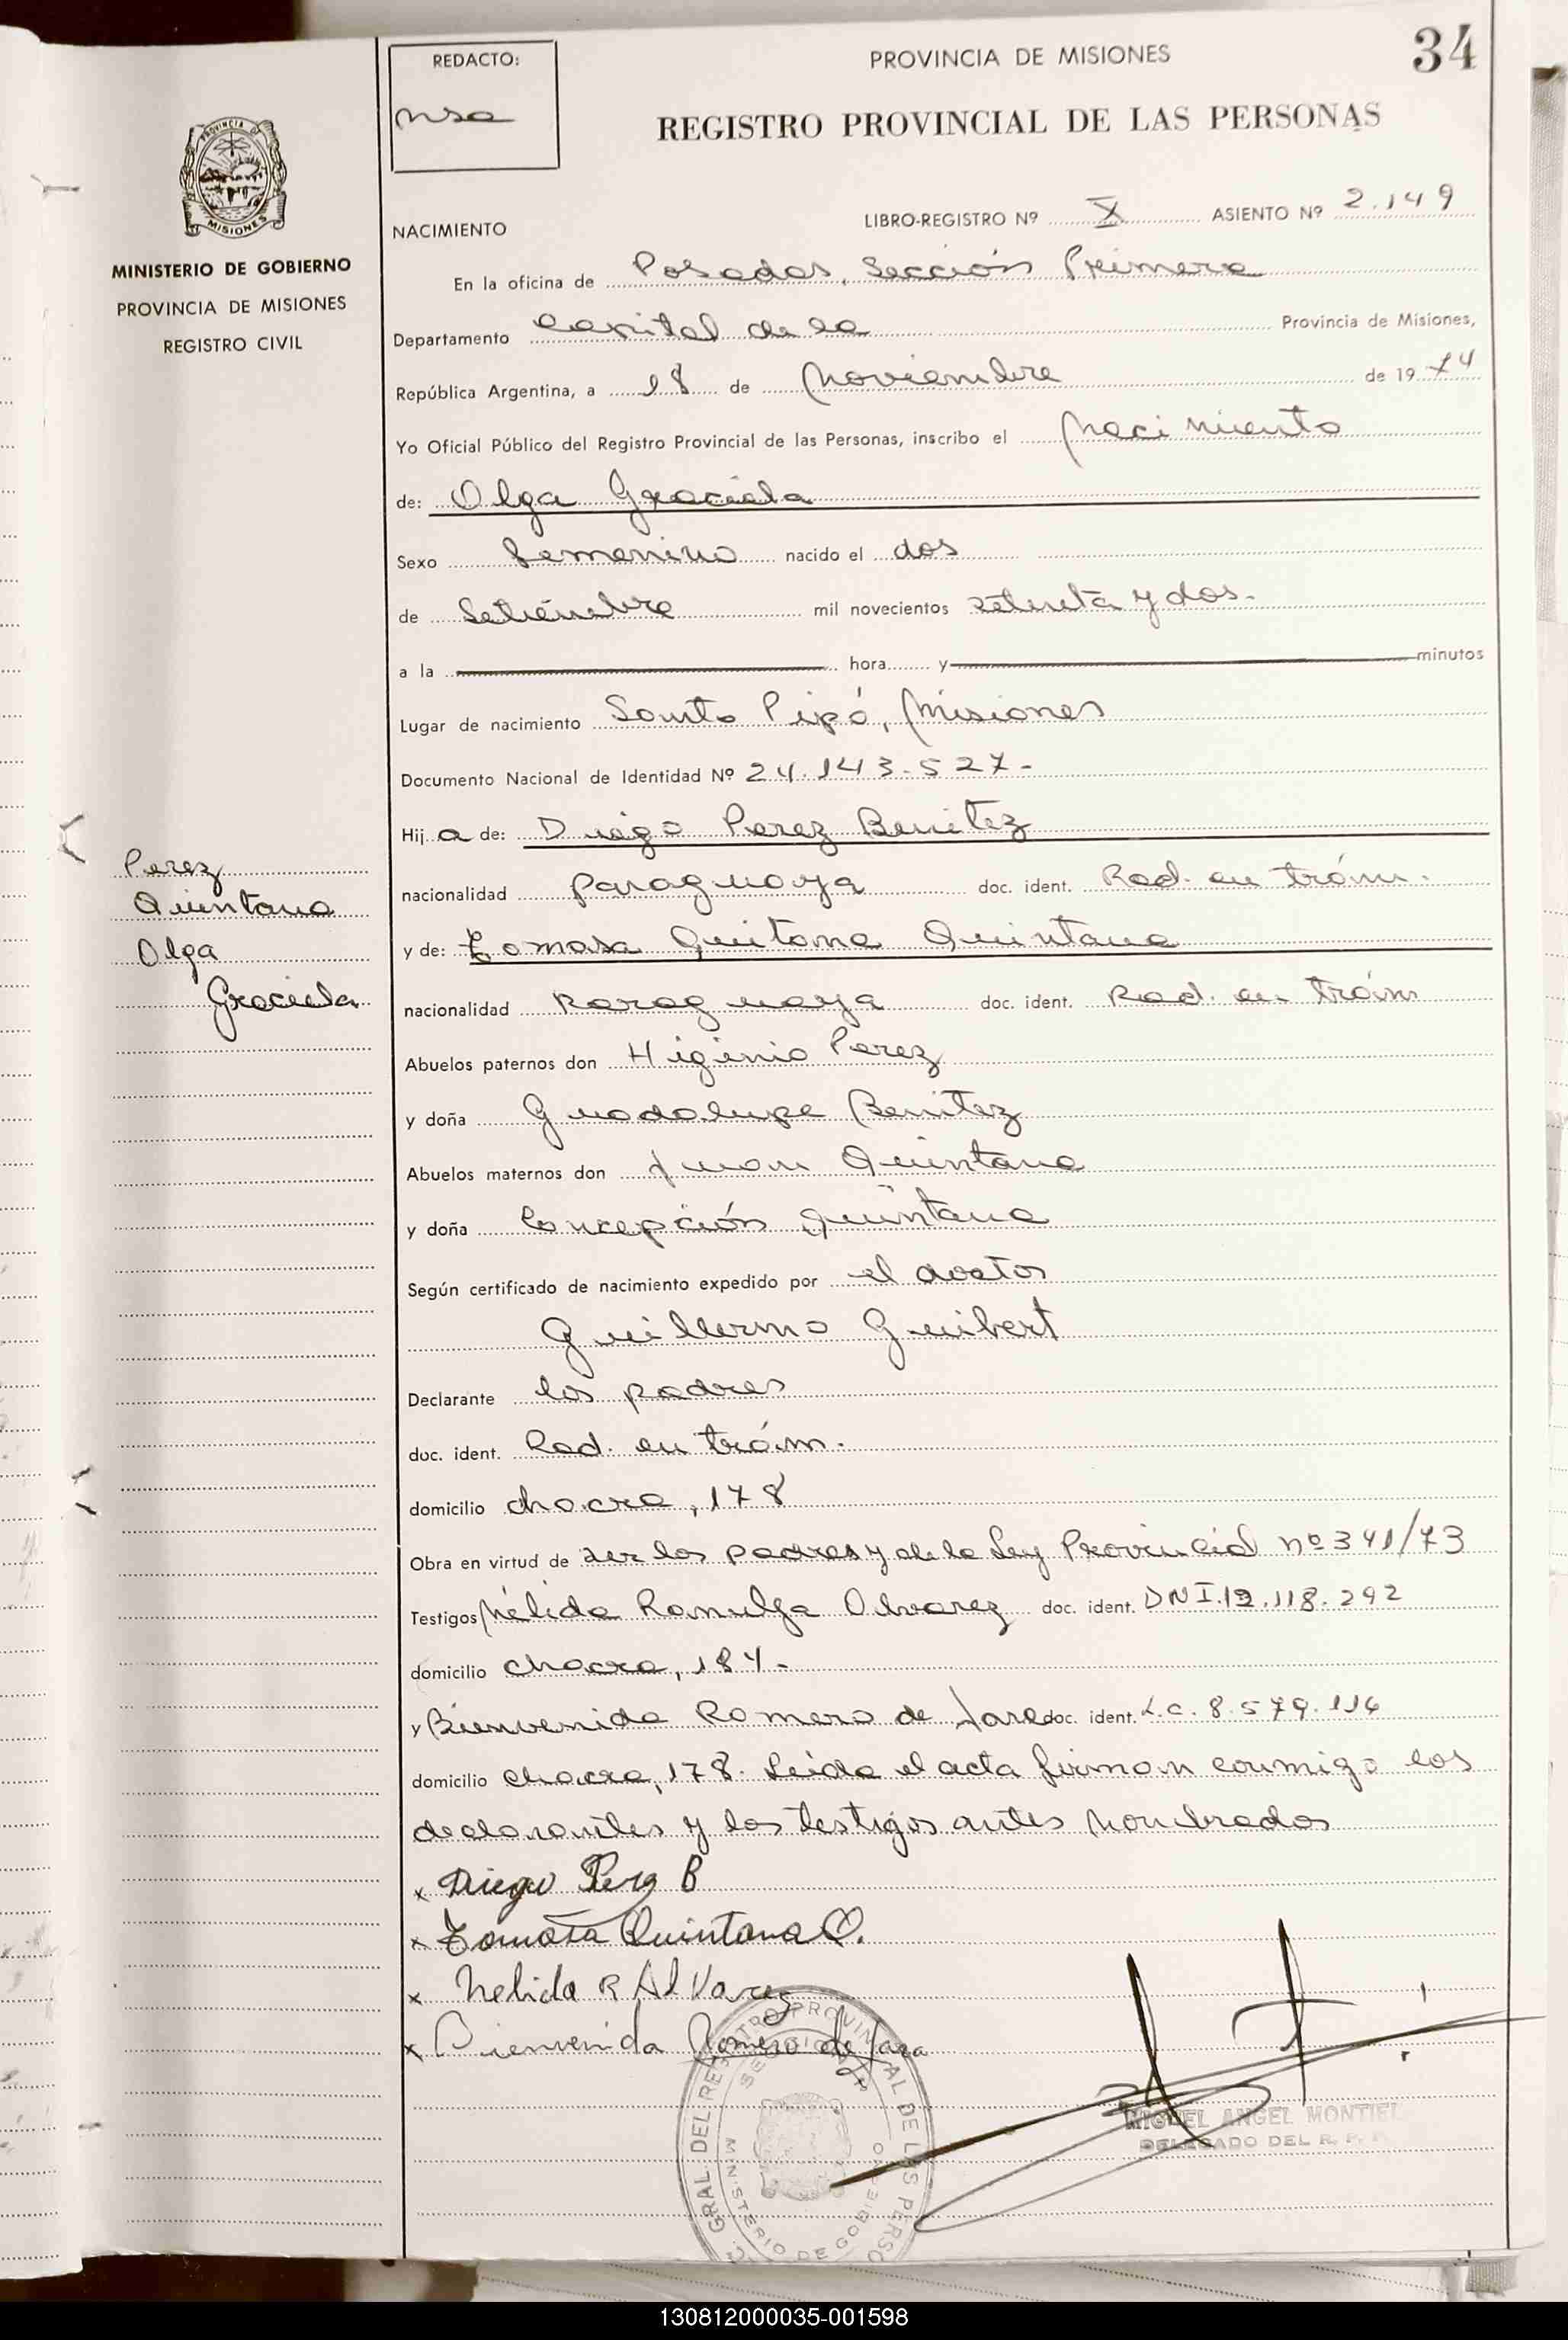 34
REDACTO:
PROVINCIA DE MISIONES
REGISTRO PROVINCIAL DE LAS PERSONAS
PROVINCIA DE
MISIONES
MINISTERIO DE GOBIERNO
PROVINCIA DE MISIONES
REGISTRO CIVIL
NACIMIENTO
LIBRO-REGISTRO Nº X ASIENTO Nº 2.149
En la oficina de Posadas, Sección Primera
Departamento Capital de la Provincia de Misiones,
República Argentina, a 18 de Noviembre de 1974
Yo Oficial Público del Registro Provincial de las Personas, inscribo el Nacimiento
de: Olga Graciela
Sexo femenino nacido el dos
de Setiembre mil novecientos setenta y dos.-
a la hora y minutos
Lugar de nacimiento Santo Pipó, Misiones
Documento Nacional de Identidad Nº 24.143.527-
Hija de: Diego Perez Benitez
nacionalidad paraguaya doc. ident. Rad. en trám.
y de: Tomasa Quitana Quintana
nacionalidad Paraguaya doc. ident. Rad. en trám
Abuelos paternos don Higinio Perez
y doña Guadalupe Benitez
Abuelos maternos don Juan Quintana
y doña Concepción Quintana
Según certificado de nacimiento expedido por el doctor
Guillermo Guibert
Declarante los padres
doc. ident. Rad. en trám.
domicilio chacra, 178
Obra en virtud de ser los padres y de la Ley Provincial nº 341/73
Testigos Nélida Ramulfa Alvarez doc. ident. DNI.12.118.292
domicilio chacra, 184-
y Bienvenida Romero de Jara doc. ident. L.C. 8.579.114
domicilio chacra, 178. Leída el acta firman conmigo los
declarantes y los testigos antes nombrados
Perez
Quintana
Olga
Graciela
x Diego Perez B
x Tomasa Quintana Q.
x Nelida R Alvarez
x Bienvenida Romero de Jara
MIGUEL ANGEL MONTIEL
DELEGADO DEL R. P.
GRAL. DEL REGISTRO PROVINCIAL DE LAS PERSO
MINISTERIO DE GOBIERNO
130812000035-001598